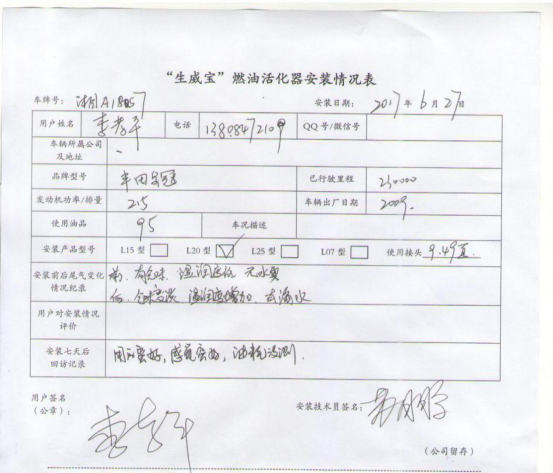 “生威宝”燃油活化器安装情况表
车牌号： 湘A18057 安装日期： 2017年6月27日
用户姓名 李孝年 电话 QQ号/微信号
车辆所属公司及地址
品牌型号 丰田皇冠 已行驶里程 230000
发动机功率/排量 2.5 车辆出厂日期 2009.
使用油品 95 车况描述
安装产品型号 L15型 L20型 L25型 L07型 使用接头 9.49直
安装前后尾气变化情况纪录 前，有余味 湿润 无水
后， 湿润度增加 水
用户对安装情况评价
安装七天后回访记录 用户蛮好，感觉蛮好，油耗没测
用户签名
（公章）： 李孝年 安装技术员签名：
（公司留存）